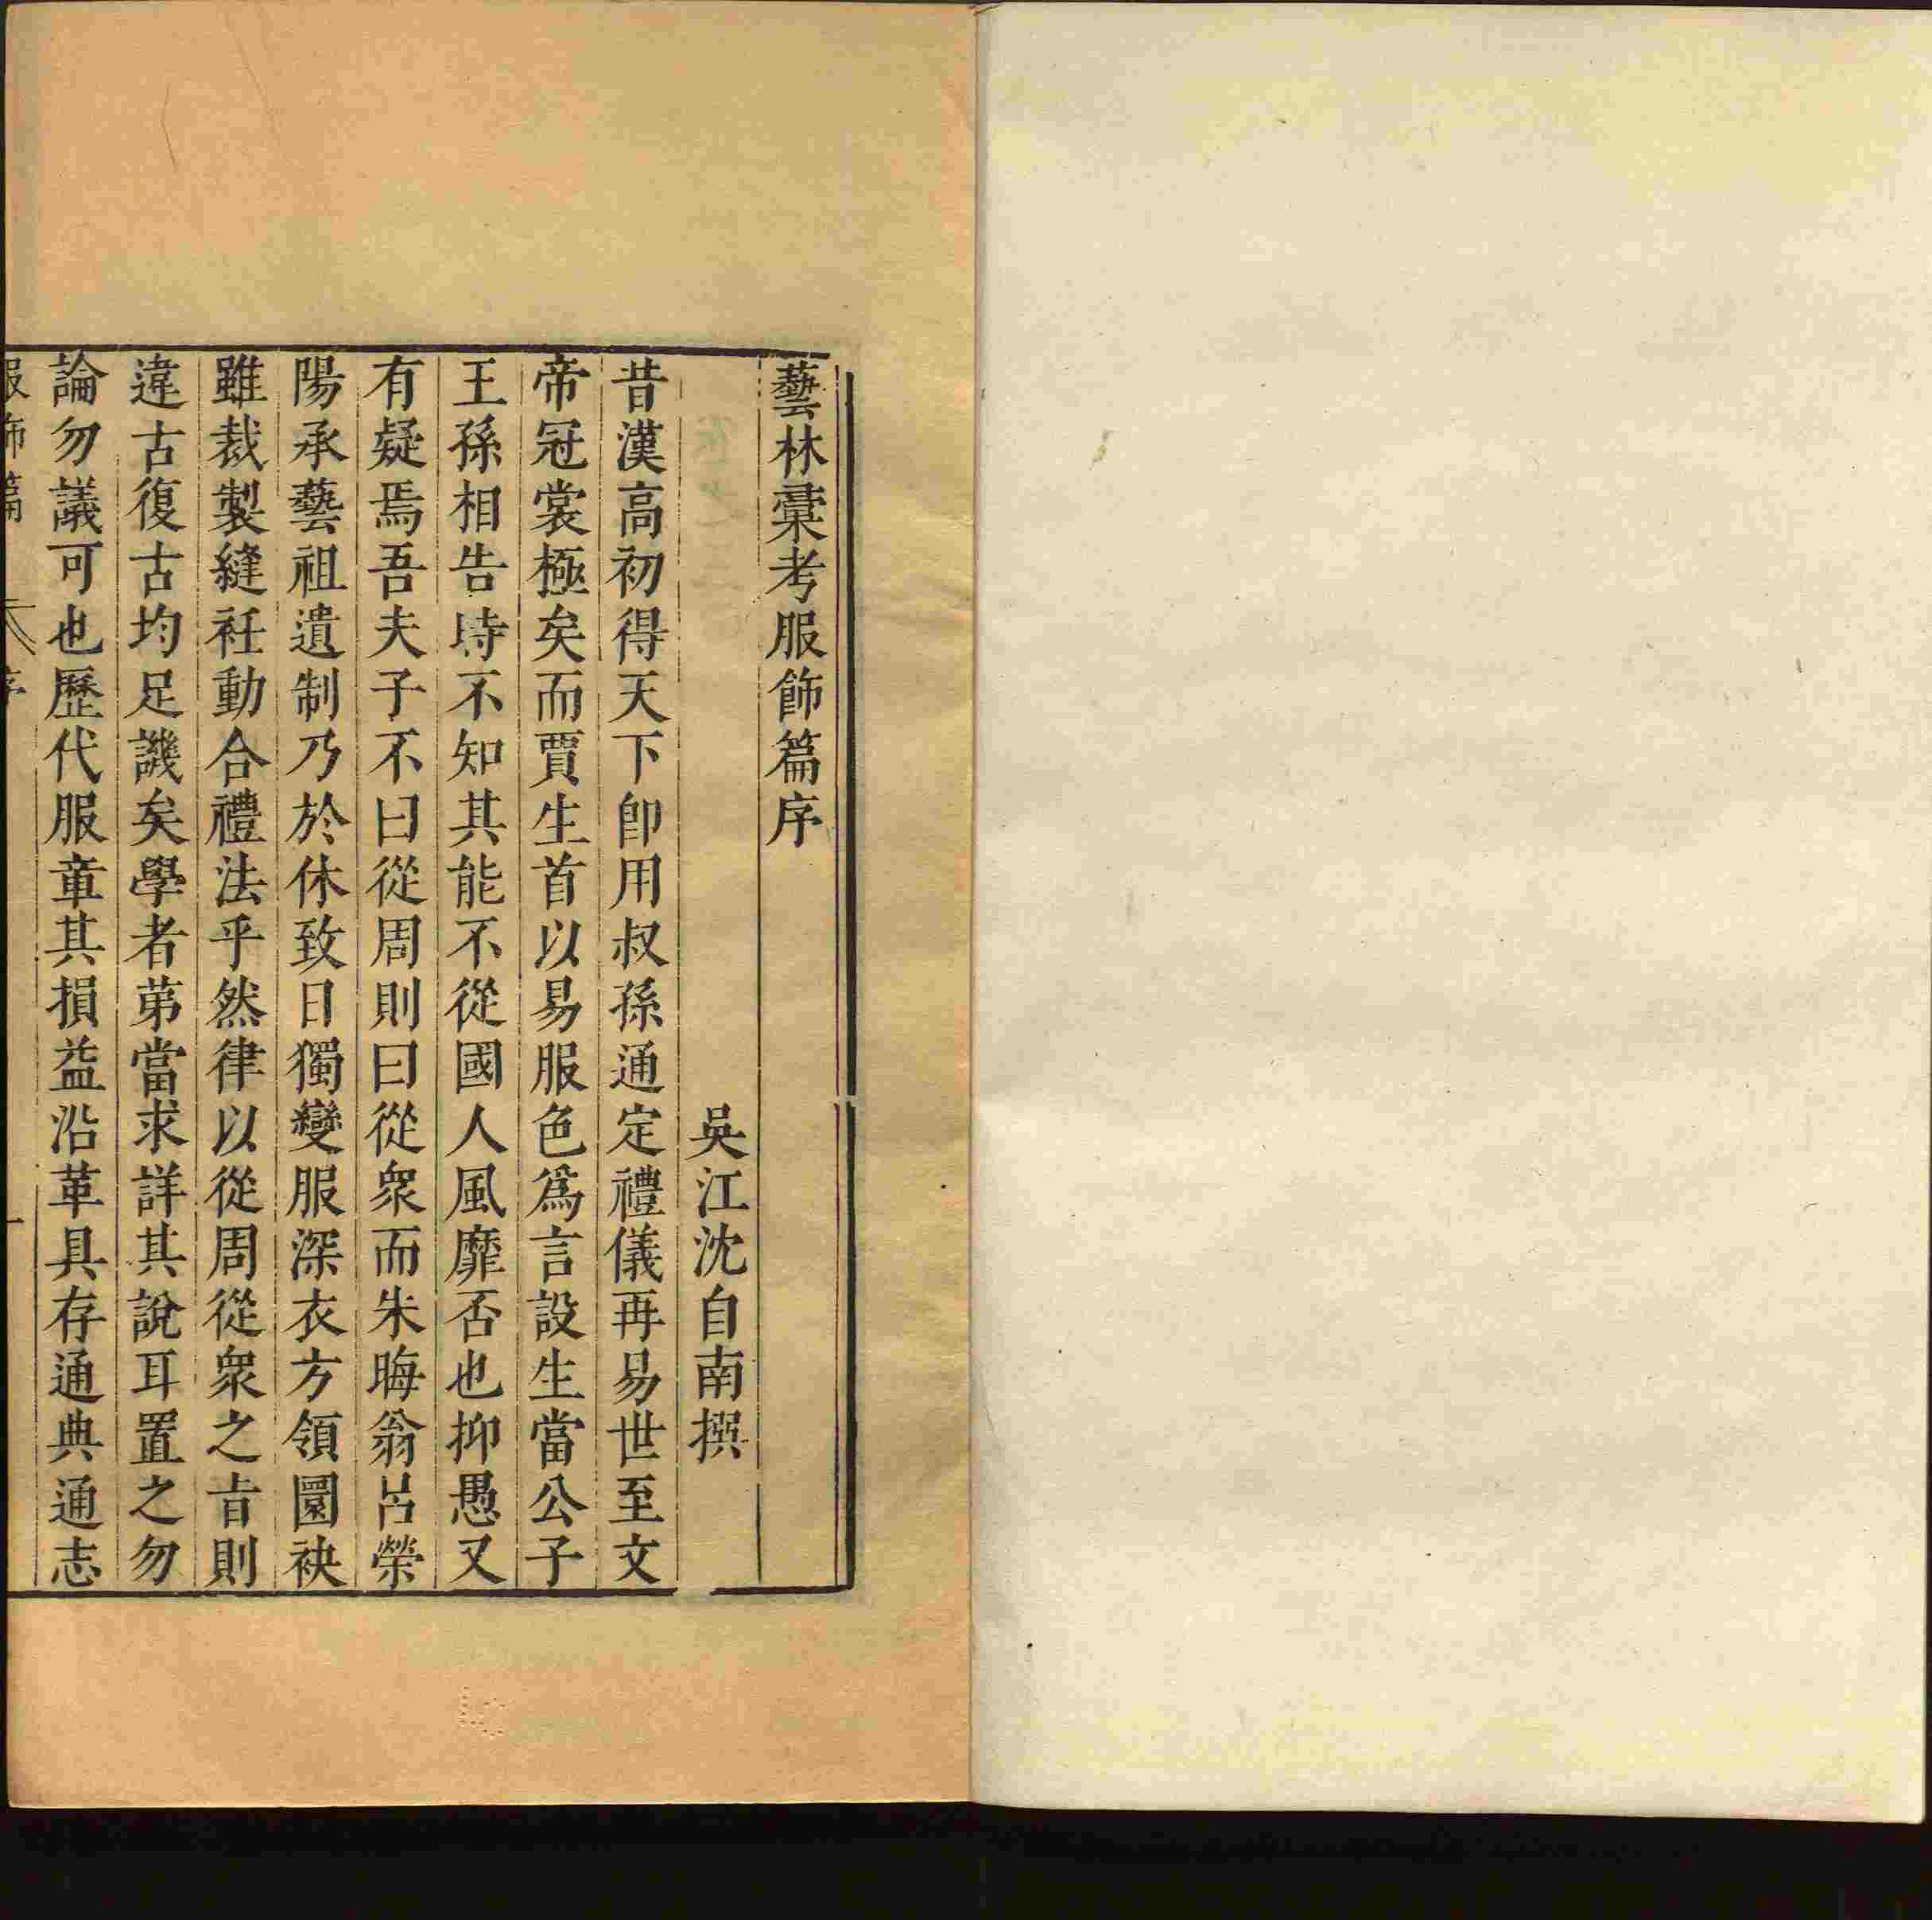 藝林彚考服飾篇序
吳江沈自南撰
昔漢高初得天下卽用叔孫通定禮儀再易世至文
帝冠裳極矣而賈生首以易服色爲言設生當公子
王孫相告時不知其能不從國人風靡否也抑愚又
有疑焉吾夫子不曰從周則曰從衆而朱晦翁呂滎
陽承藝祖遺制乃於休致日獨變服深衣方領圜袂
雖裁製縫衽動合禮法乎然律以從周從衆之旨則
違古復古均足譏矣學者苐當求詳其說耳置之勿
論勿議可也歷代服章其損益沿革具存通典通志
服飾篇 序 一